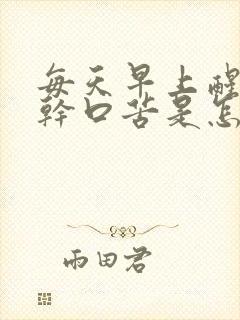 每天早上醒
幹口苦是怎
雨田君